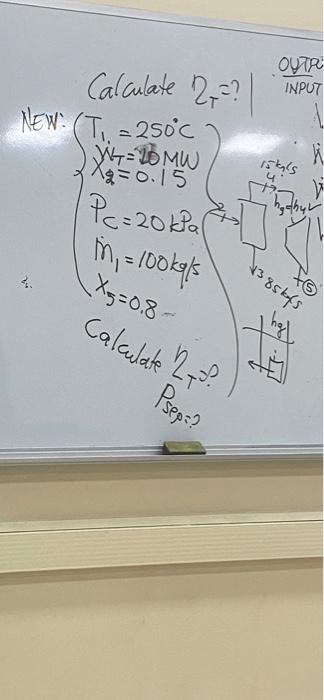 Calculate η_T=?
OUTPU
INPUT
NEW:
T₁ = 250°C
Ẇ_T = 20 MW
X₂ = 0.15
P_C = 20 kPa
ṁ₁ = 100 kg/s
X₅ = 0.8
Calculate η_T=?
P_sep=?
15 kg/s
4
2
3 85 kg/s
5
hg